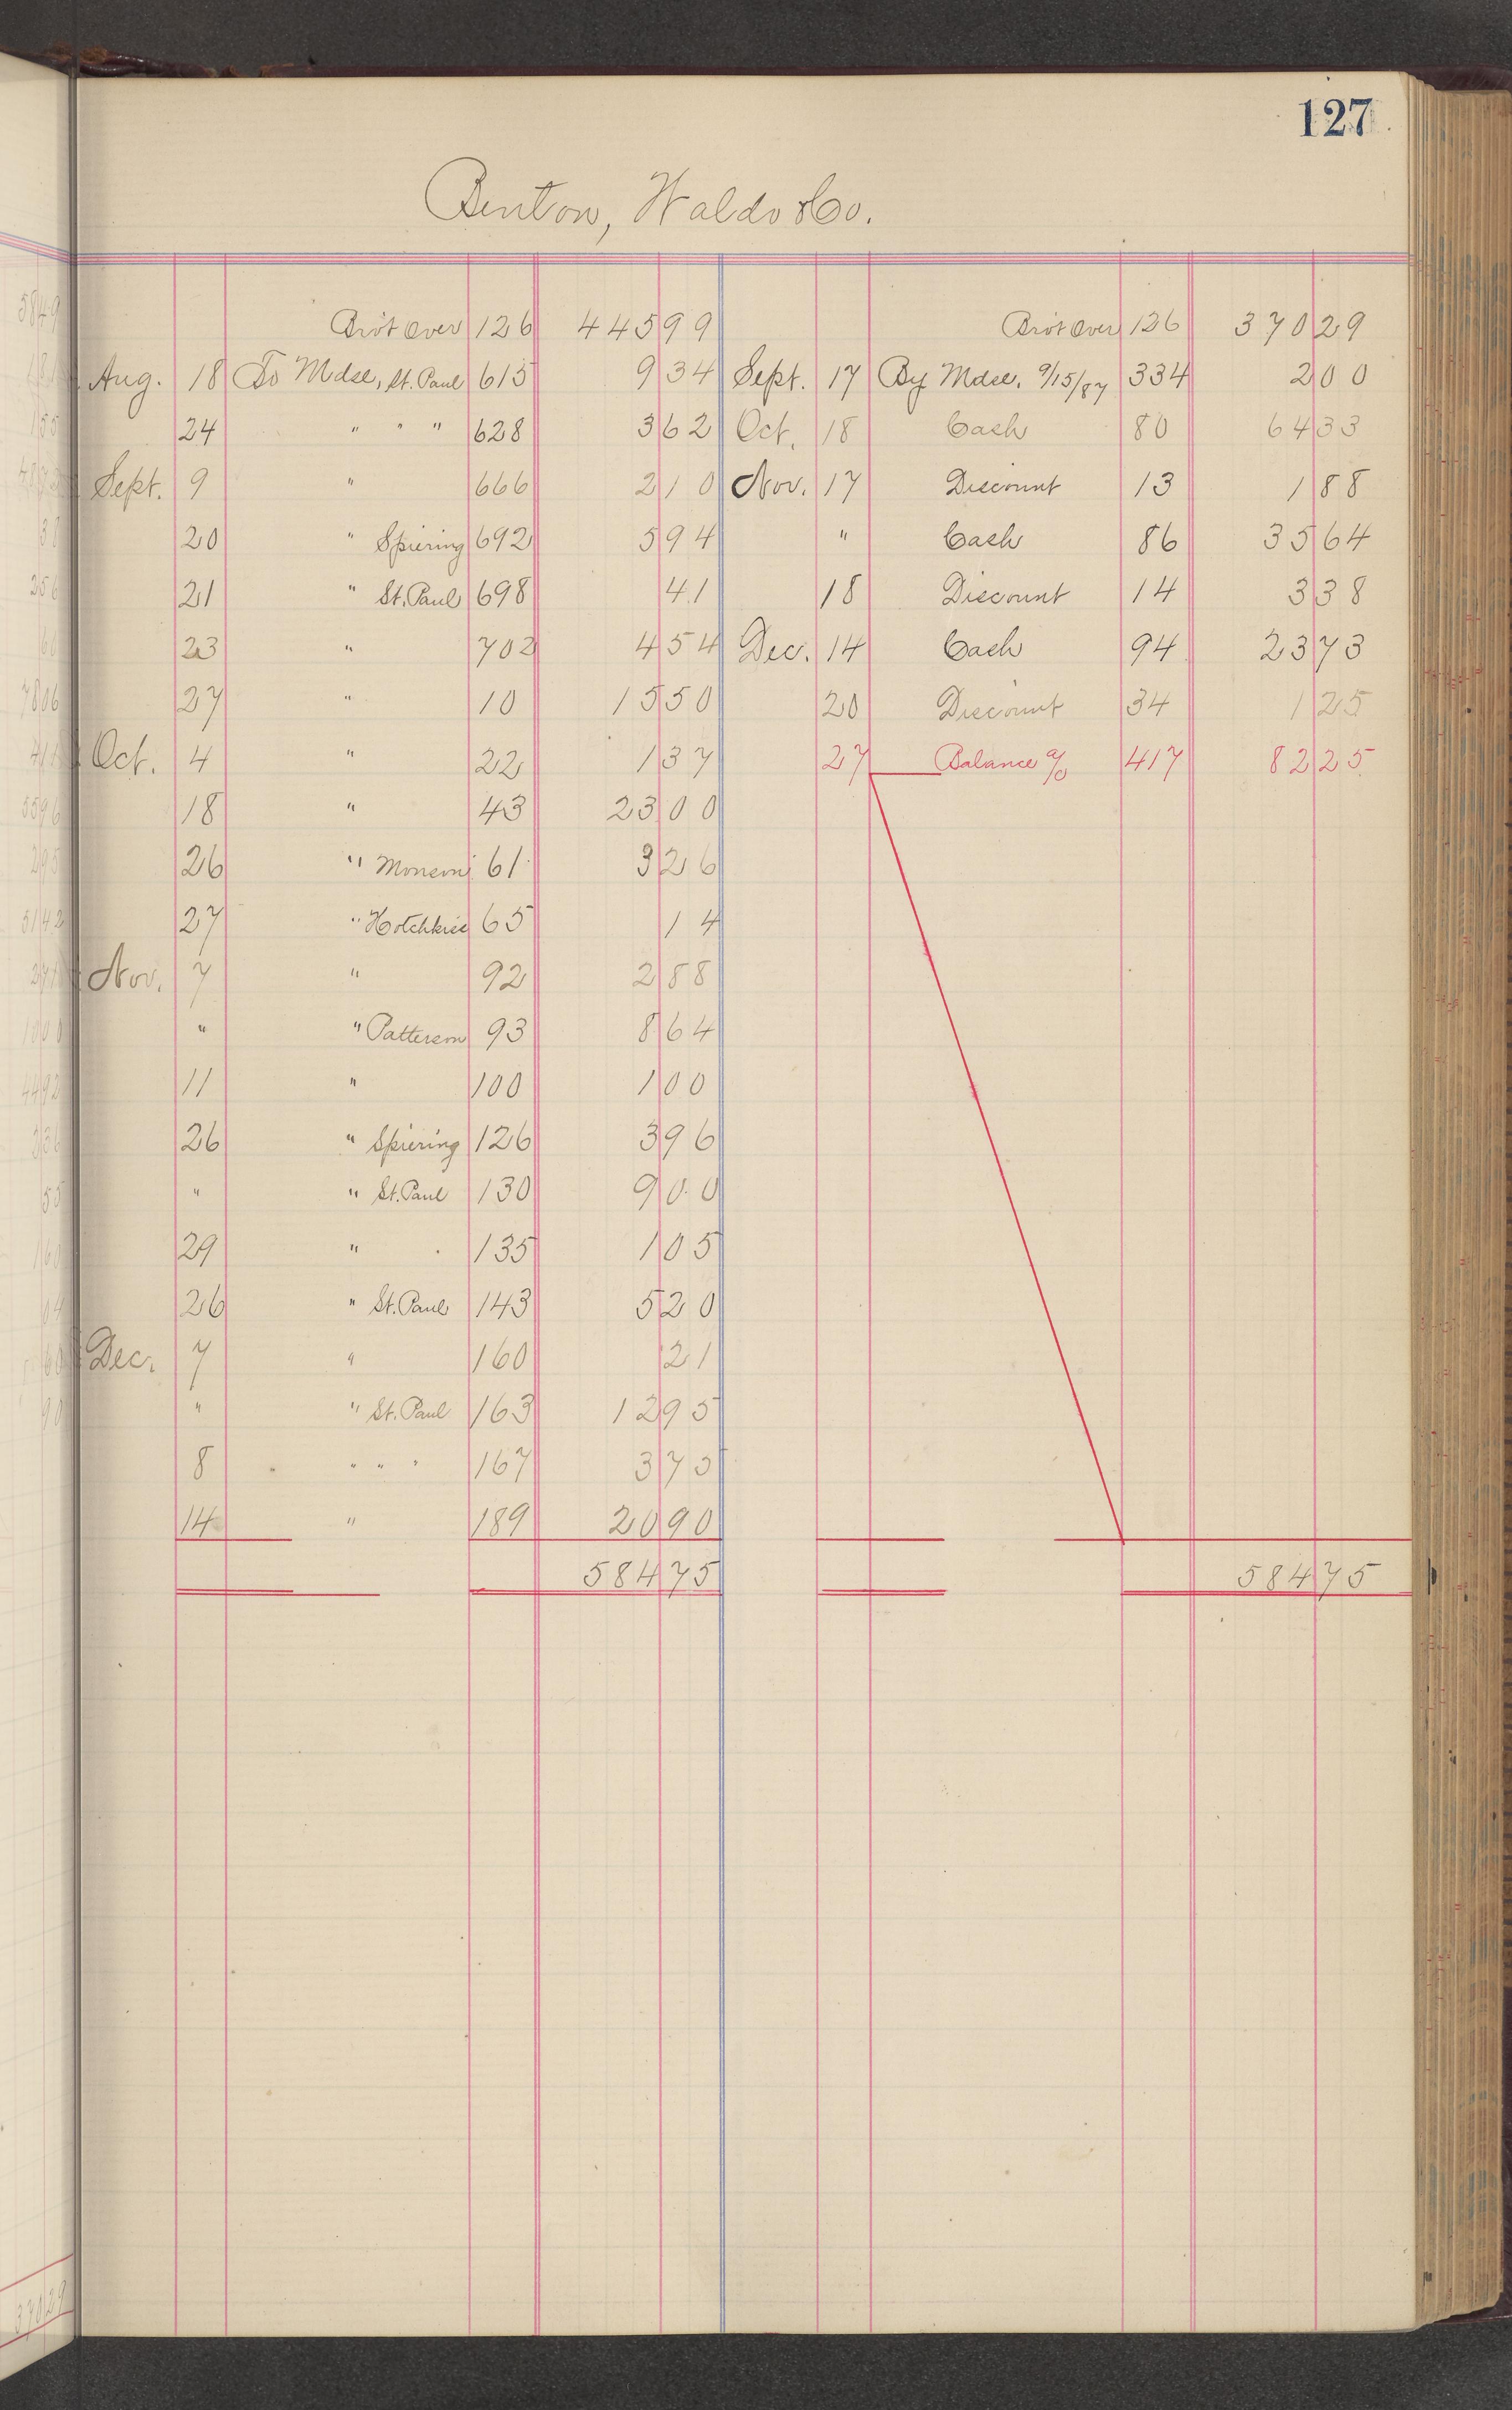 127
Benton, Waldo & Co.
Bro't Over 126 445 99 Bro't Over 126 370 29
Aug. 18 To Mdse, St. Paul 615 9 34 Sept. 17 By Mdse. 9/15/87 334 2 00
24 " " " 628 3 62 Oct. 18 Cash 80 64 33
Sept. 9 " 666 2 10 Nov. 17 Discount 13 1 88
20 " Spiering 692 5 94 " Cash 86 35 64
21 " St. Paul 698 41 18 Discount 14 3 38
23 " 702 4 54 Dec. 14 Cash 94 23 73
27 " 10 15 50 20 Discount 34 1 25
Oct. 4 " 22 1 37 27 Balance a/c 417 82 25
18 " 43 23 00
26 " Monson 61 3 26
27 " Hotchkiss 65 14
Nov. 7 " 92 2 88
" " Patterson 93 8 64
11 " 100 1 00
26 " Spiering 126 3 96
" " St. Paul 130 9 00
29 " 135 1 05
26 " St. Paul 143 5 20
Dec. 7 " 160 21
" " St. Paul 163 12 95
8 " " " 167 3 75
14 " 189 20 90
584 75 584 75